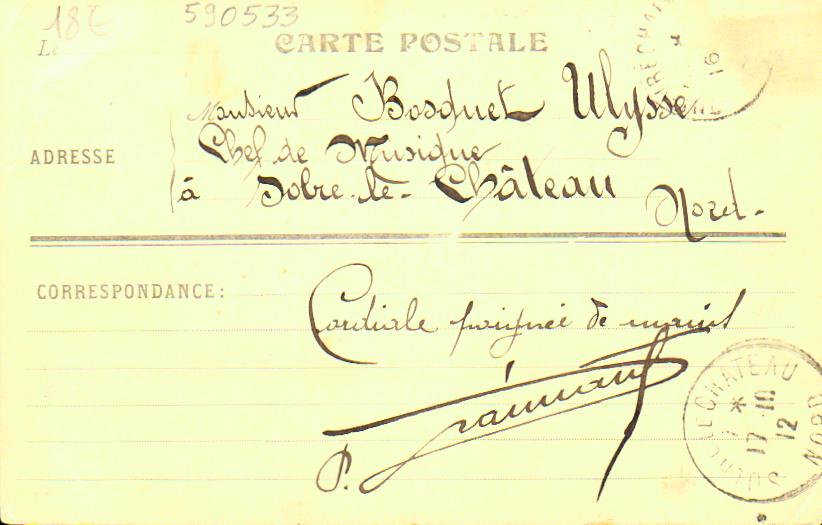 18€ 590533
Le
CARTE POSTALE
Monsieur Bosquet Ulysse
ADRESSE
Chef de Musique
à Solre-le-Château Nord-
CORRESPONDANCE:
Cordiale poignée de mains
P.
SOLRE LE CHATEAU
17-10
12
NORD
16